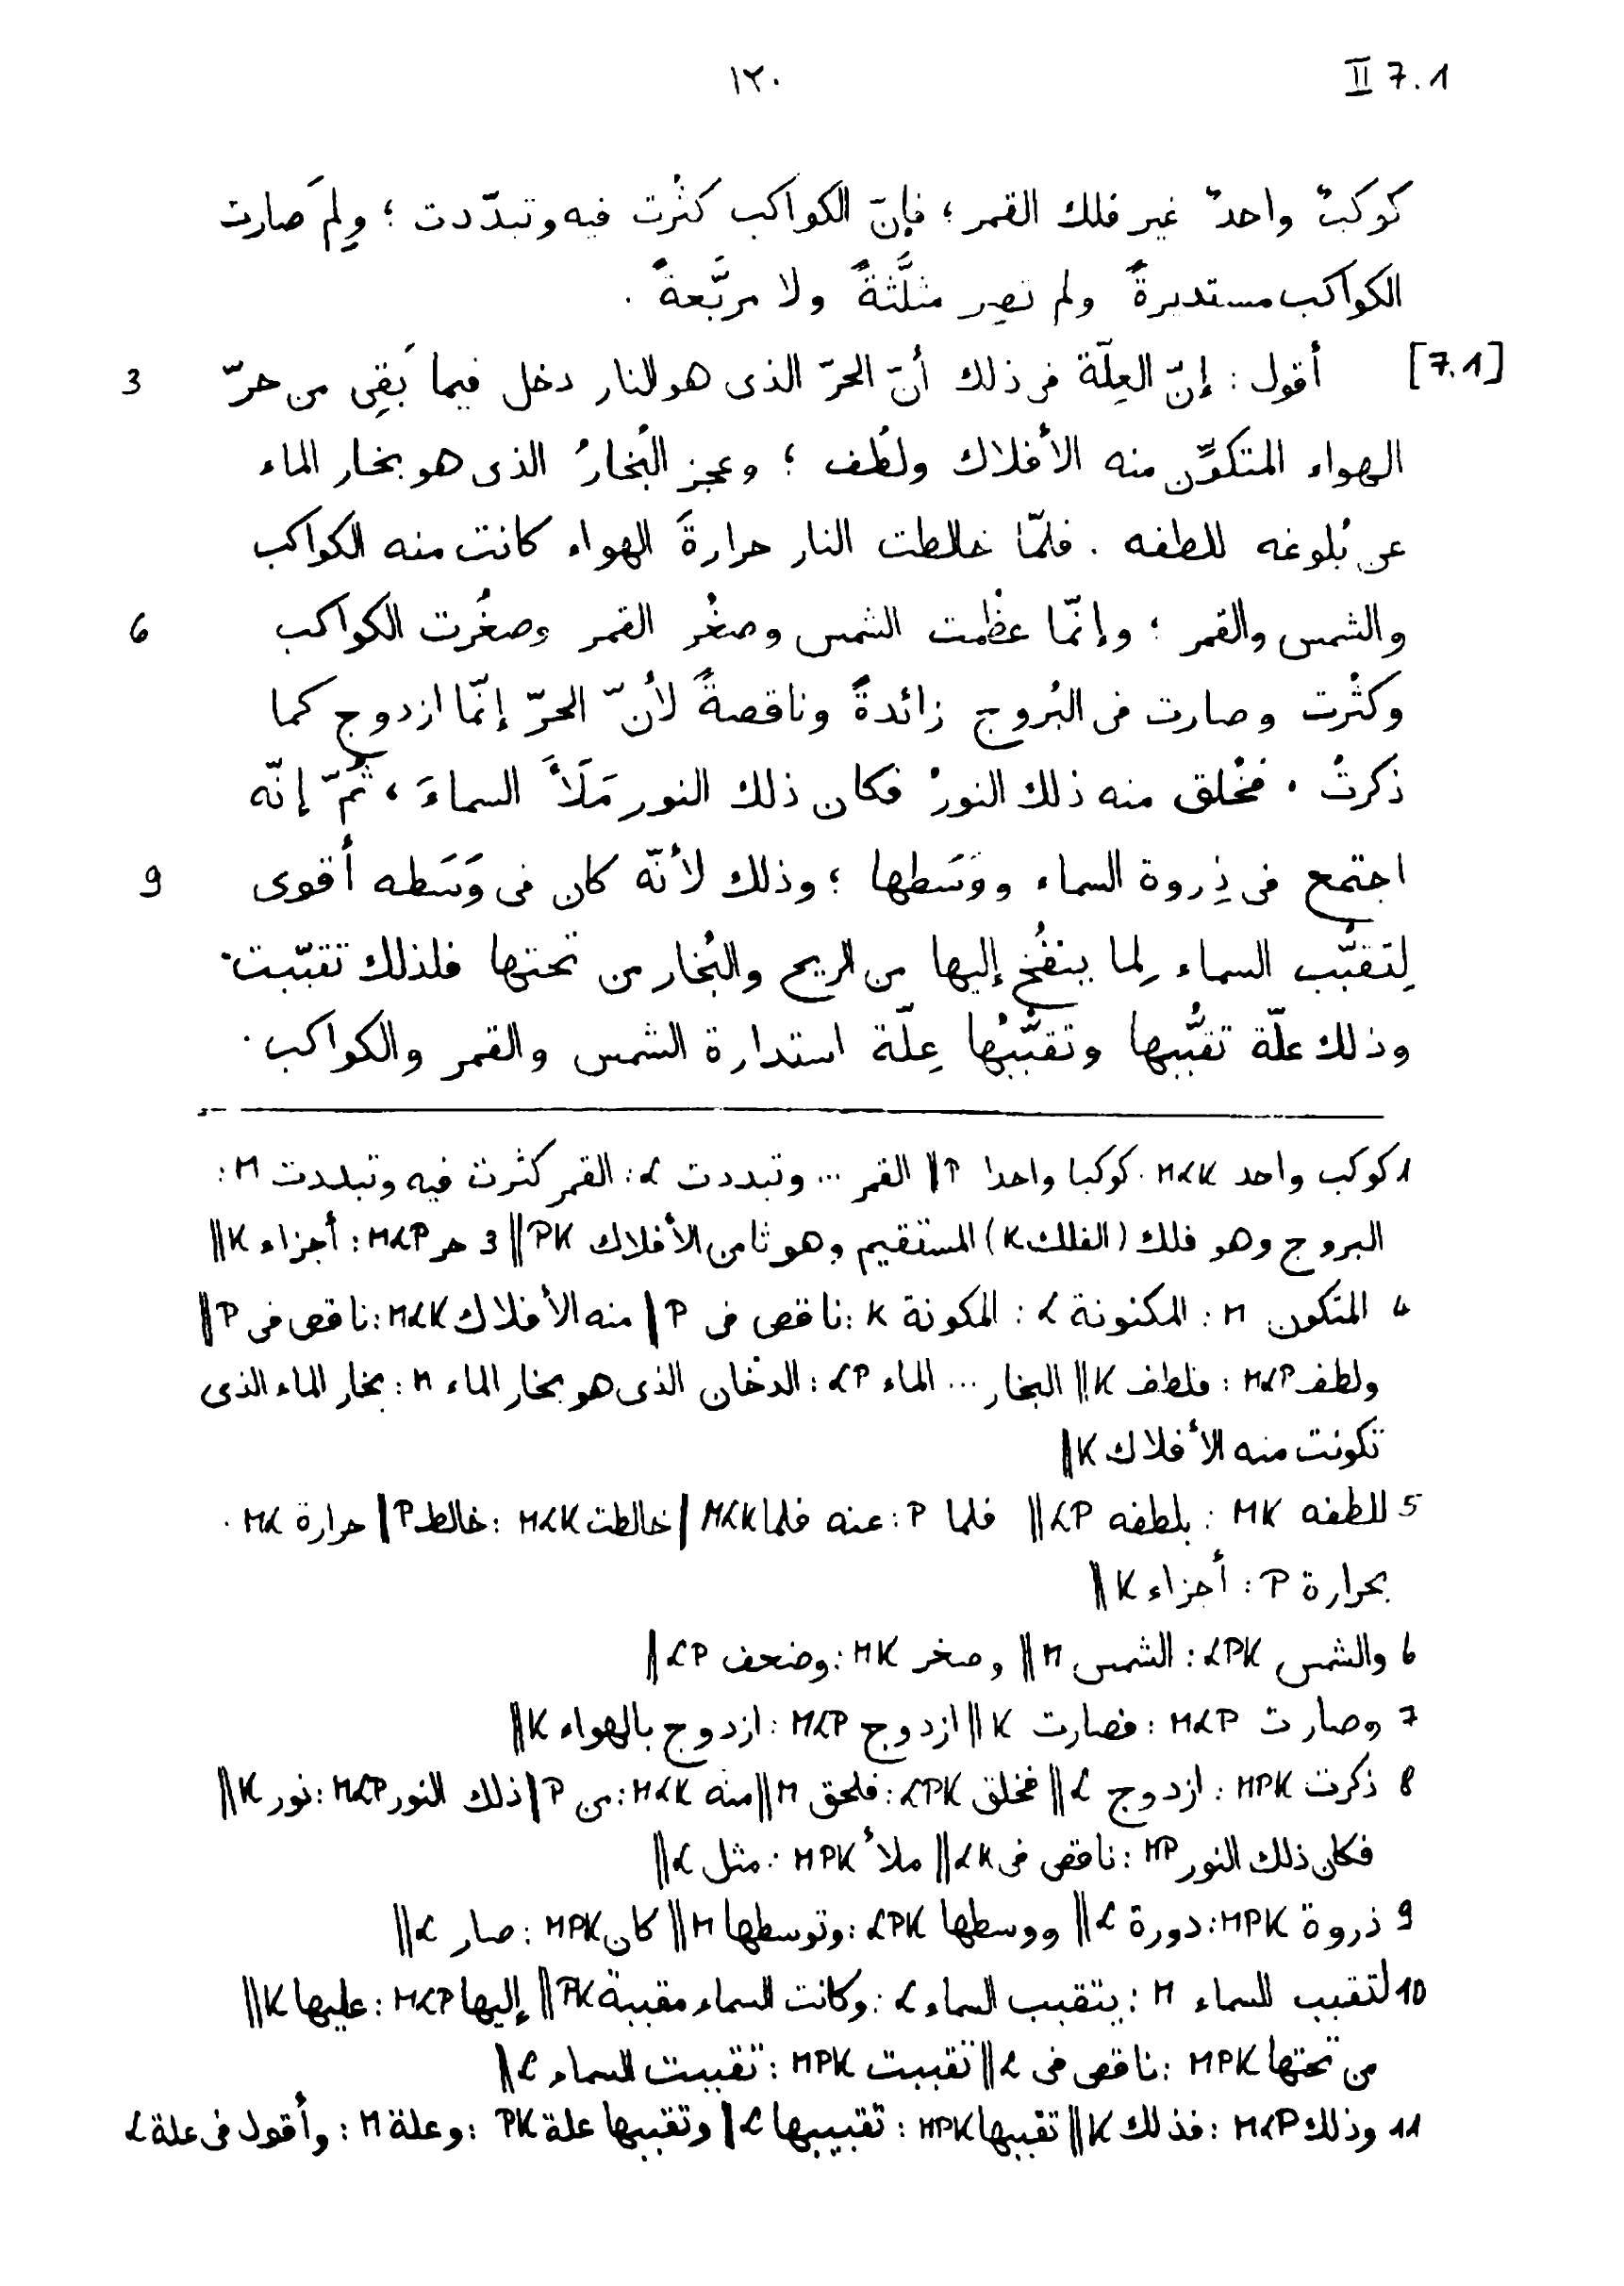 II 7.1
١٢٠
كوكبٌ واحدٌ غير فلك القمر؛ فإنّ الكواكب كثُرت فيه وتبدّدت؛ ولِمَ صارت
الكواكب مستديرةً ولم تصِر مثلَّثةً ولا مربَّعةً.
[7.1] أقول: إنّ العِلّة فى ذلك أنّ الحرّ الذى هو للنار دخل فيما بَقِى من حرّ 3
الهواء المتكوّن منه الأفلاك ولطُف؛ وعجز البُخارُ الذى هو بخار الماء
عن بُلوغه للطفه. فلمّا خالطت النار حرارةَ الهواء كانت منه الكواكب
والشمس والقمر؛ وإنّما عظُمت الشمس وصغُر القمر وصغُرت الكواكب 6
وكثُرت وصارت فى البُروج زائدةً وناقصةً لأنّ الحرّ إنّما ازدوج كما
ذكرتُ. فخُلق منه ذلك النورُ فكان ذلك النور مَلَأَ السماءَ، ثُمّ إنّه
اجتمع فى ذِروة السماء ووَسَطها؛ وذلك لأنّه كان فى وَسَطه أقوى 9
لِتَقبُّب السماء لِما ينفُخ إليها من الريح والبُخار من تحتها فلذلك تقبّبت.
وذلك علّة تقبُّبها وتقبُّبُها عِلّة استدارة الشمس والقمر والكواكب.
1 كوكب واحد MLK: كوكبا واحدا P || القمر ... وتبددت L: القمر كثرت فيه وتبددت M:
البروج وهو فلك (الفلك K) المستقيم وهو ثامن الأفلاك PK || 3 حر MLP: أجزاء K ||
4 المتكون M: المكنونة L: المكونة K: ناقص فى P | منه الأفلاك MLK: ناقص فى P ||
ولطف MLP: فلطف K || البخار ... الماء LP: الدخان الذى هو بخار الماء M: بخار الماء الذى
تكونت منه الأفلاك K ||
5 للطفه MK: بلطفه LP || فلما P: عنه فلما MLK | خالطت MLK: خالط P | حرارة ML:
بحرارة P: أجزاء K ||
6 والشمس LPK: الشمس M || وصغر MK: وضعف LP ||
7 وصارت MLP: فصارت K || ازدوج MLP: ازدوج بالهواء K ||
8 ذكرت MPK: ازدوج L || فخلق LPK: فلحق M || منه MLK: من P | ذلك النور MLP: نور K ||
فكان ذلك النور MP: ناقص فى LK || ملأ MPK: مثل L ||
9 ذروة MPK: دورة L || ووسطها LPK: وتوسطها M || كان MPK: صار L ||
10 لتقبب السماء M: يتقبب السماء L: وكانت السماء مقببة PK || إليها MLP: عليها K ||
من تحتها MPK: ناقص فى L || تقببت MPK: تقببت السماء L ||
11 وذلك MLP: فذلك K || تقببها MPK: تقبيبها L | وتقببها علة PK: وعلة M: وأقول فى علة L